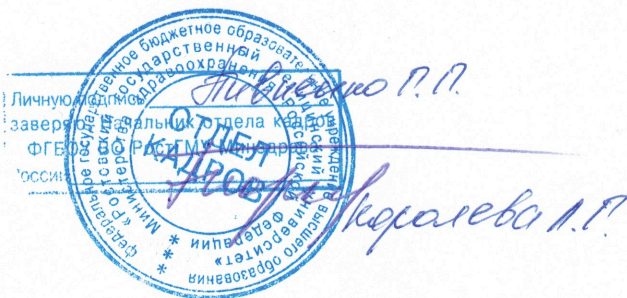 Личную подпись
П.П.
заверяю Начальник отдела кадров
ФГБОУ ВО РостГМУ Минздрава
России
Королева
федеральное государственное бюджетное образовательное учреждение высшего образования
«Ростовский государственный медицинский университет»
Министерства здравоохранения Российской Федерации
ОТДЕЛ
КАДРОВ